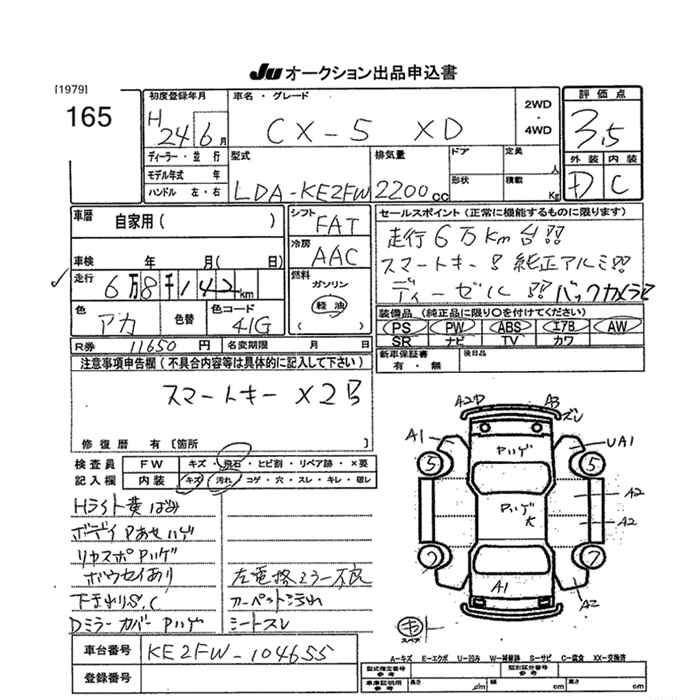 Ju オークション出品申込書
[1979]
165
初度登録年月
H 24 6月
車名・グレード
CX-5 XD
2WD・4WD
評価点
3.5
ディーラー・並行
モデル年式 年
ハンドル 左・右
型式
LDA-KE2FW
排気量
2200cc
ドア
形状
定員 人
積載 Kg
外装 内装
D C
車歴 自家用( )
シフト FAT
冷房 AAC
セールスポイント(正常に機能するものに限ります)
走行6万Km台!!
スマートキー!! 純正アルミ!!
ディーゼル!! バックカメラ
車検 年 月( 日)
走行 6万8千142km
燃料
ガソリン
軽油
( )
色 アカ
色替
色コード 41G
装備品(純正品に限り○を付けてください)
PS PW ABS エアB AW
SR ナビ TV カワ
R券 11650円
名変期限 月 日
新車保証書
有・無
後日品
注意事項申告欄(不具合内容等は具体的に記入して下さい)
スマートキー ×2
修復歴 有〔箇所 〕
検査員
記入欄
FW キズ・飛石・ヒビ割・リペア跡・×要
内装 キズ・汚れ・コゲ・穴・スレ・キレ・破レ
Hライト黄ばみ
ボディPあせハゲ
リヤスポPハゲ
ボウセイあり
下まわりS、C
DミラーカバーPハゲ
左電格ミラー不良
カーペット汚れ
シートスレ
A2P
A3
ズレ
A1
Pハゲ
UA1
5
5
A2
Pハゲ
大
A2
7
7
A1
A2
キ
スペア
車台番号 KE2FW-104655
登録番号
A-キズ E-エクボ U-凹み W-補修跡 S-サビ C-腐食 XX-交換済
型式指定番号
参考
類別区分番号
参考
車庫証明用
参考
長 cm 幅 cm 高 cm